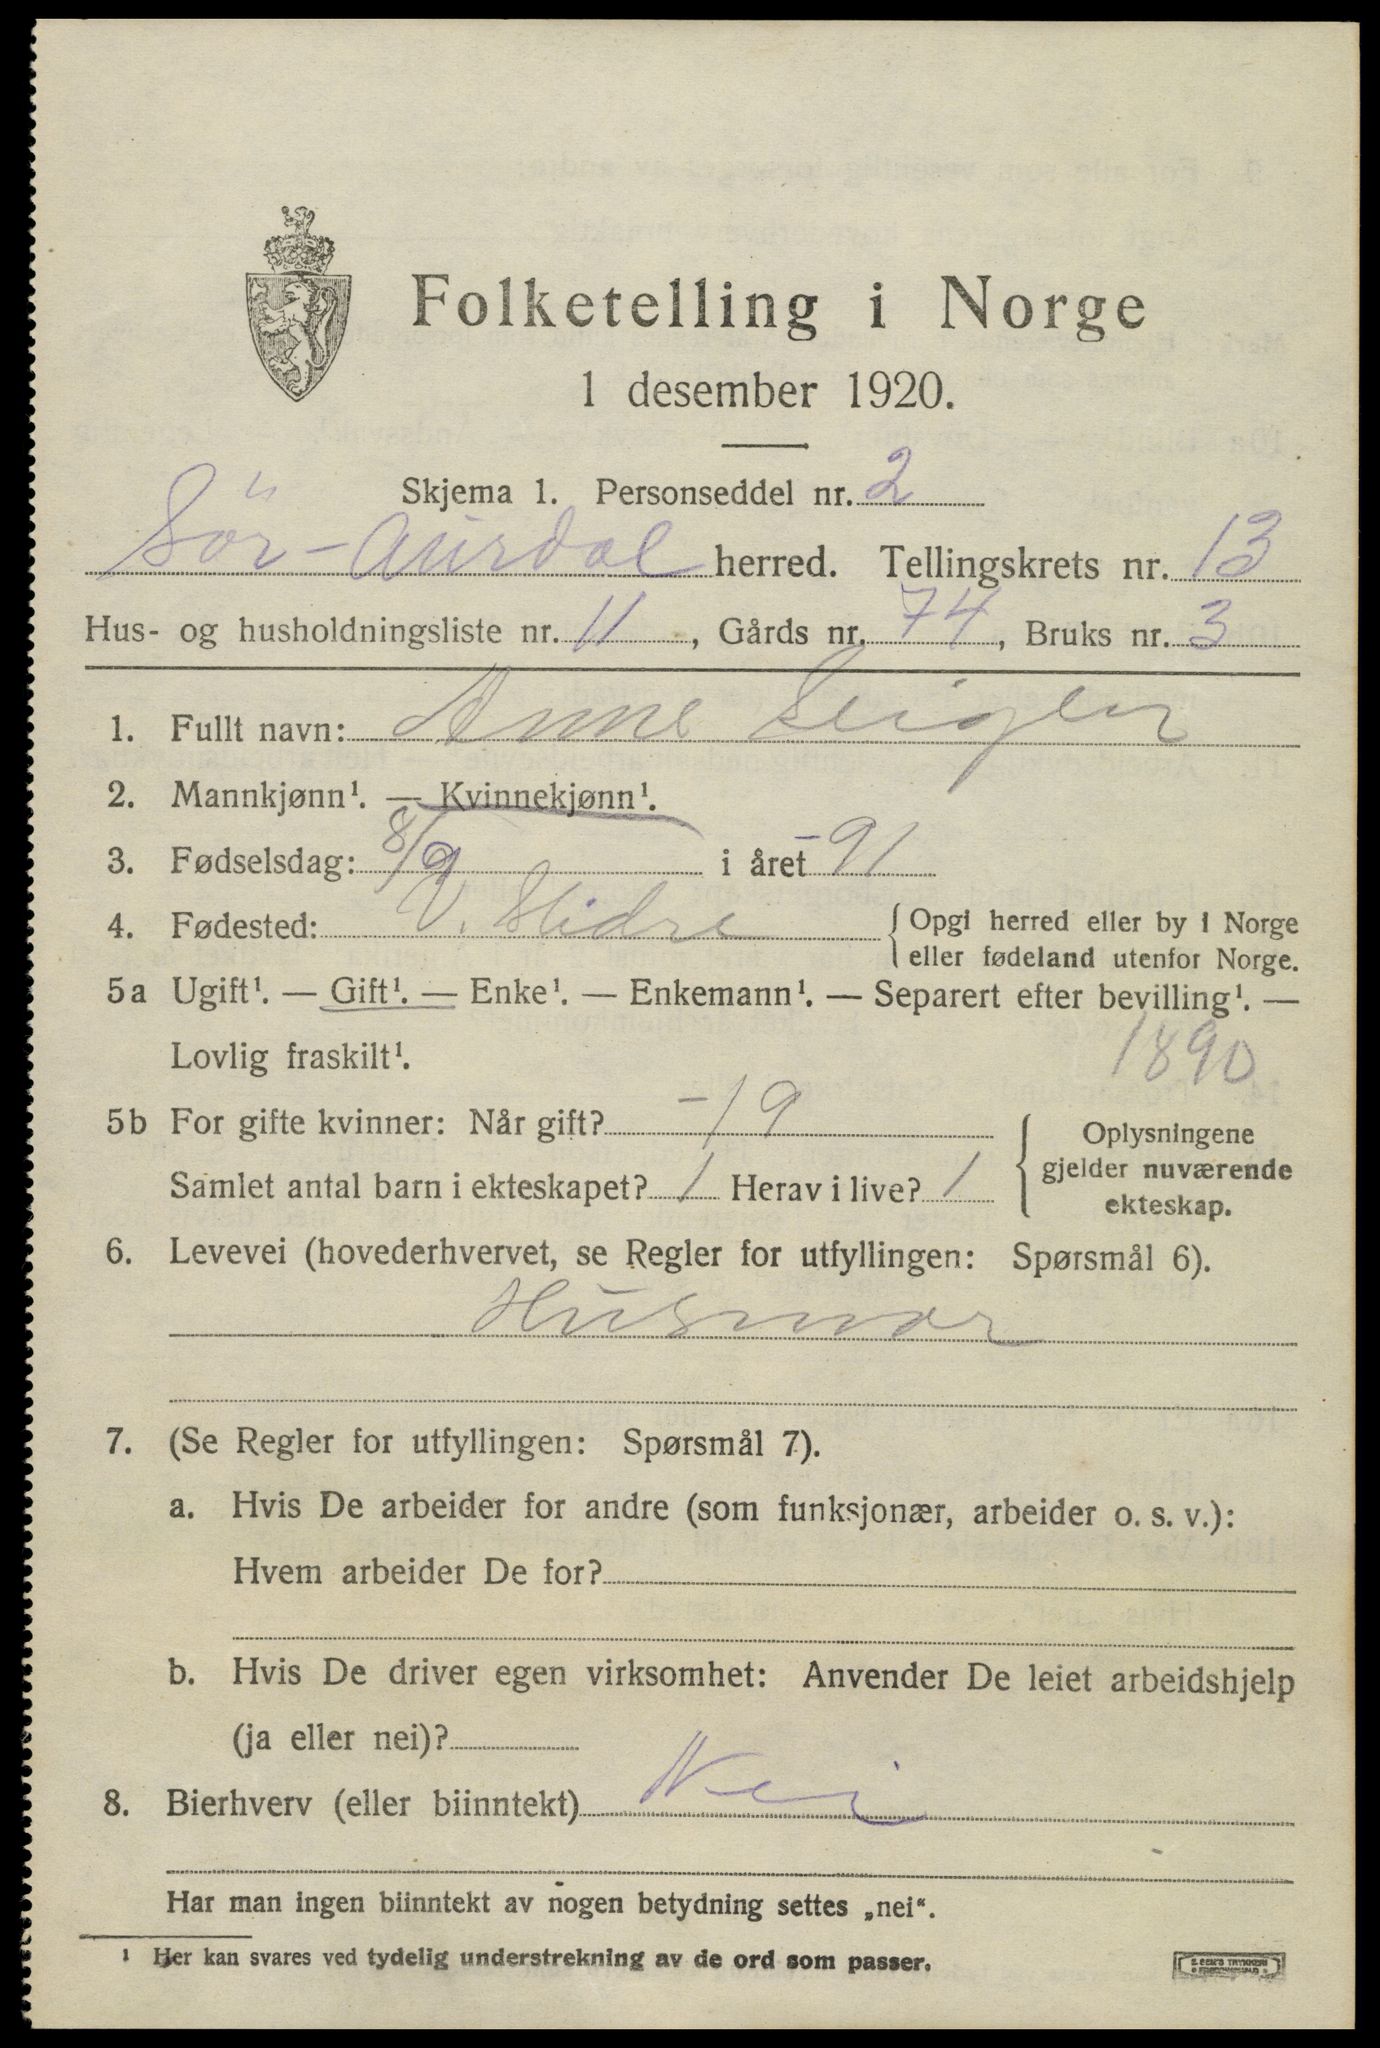 Folketelling i Norge
1 desember 1920.
Skjema 1. Personseddel nr. 2
Sör-Aurdal herred. Tellingskrets nr. 13
Hus- og husholdningsliste nr. 11, Gårds nr. 74, Bruks nr. 3
1. Fullt navn: Anne
2. Mannkjønn¹. — Kvinnekjønn¹.
3. Fødselsdag: 8/9 i året -91
4. Fødested: V. Slidre {Opgi herred eller by i Norge
eller fødeland utenfor Norge.
5a Ugift¹. — Gift¹. — Enke¹. — Enkemann¹. — Separert efter bevilling¹. —
Lovlig fraskilt¹. 1890
5b For gifte kvinner: Når gift? -19
Samlet antal barn i ekteskapet? 1 Herav i live? 1
{Oplysningene
gjelder nuværende
ekteskap.
6. Levevei (hovederhvervet, se Regler for utfyllingen: Spørsmål 6).
Husmor
7. (Se Regler for utfyllingen: Spørsmål 7).
a. Hvis De arbeider for andre (som funksjonær, arbeider o. s. v.):
Hvem arbeider De for?
b. Hvis De driver egen virksomhet: Anvender De leiet arbeidshjelp
(ja eller nei)?
8. Bierhverv (eller biinntekt) Nei
Har man ingen biinntekt av nogen betydning settes „nei“.
¹ Her kan svares ved tydelig understrekning av de ord som passer.